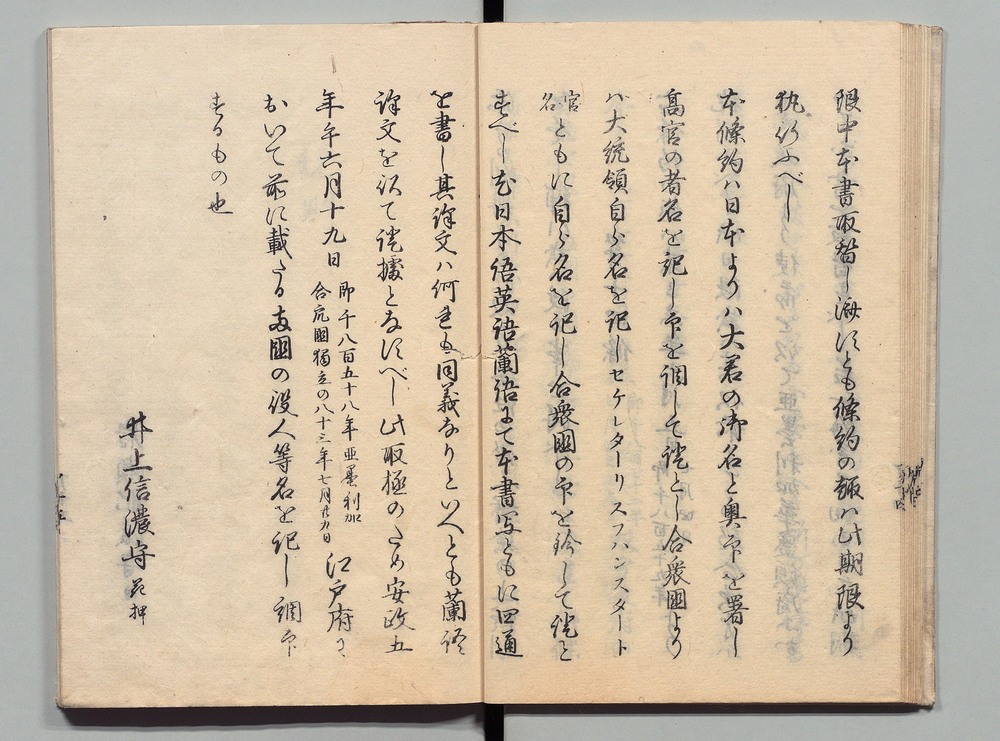 限中本書取替し済すとも條約の趣ハ此期限より
執行ふべし
本條約ハ日本よりハ大君の御名と奥印を署し
高官の者名を記し印を調して證とし合衆國より
ハ大統領自ら名を記しセケレターリスフハンスタート
官名ともに自ら名を記し合衆國の印を鈐して證と
すへし尤日本語英語蘭語にて本書写ともに四通
を書し其譯文ハ何れも同義なりといへとも蘭語
譯文を以て證據となすへし此取極のため安政五
年午六月十九日 即千八百五十八年亜墨利加合衆國獨立の八十三年七月廿九日 江戸府に
おいて前に載たる両國の役人等名を記し調印
するもの也
井上信濃守 花押